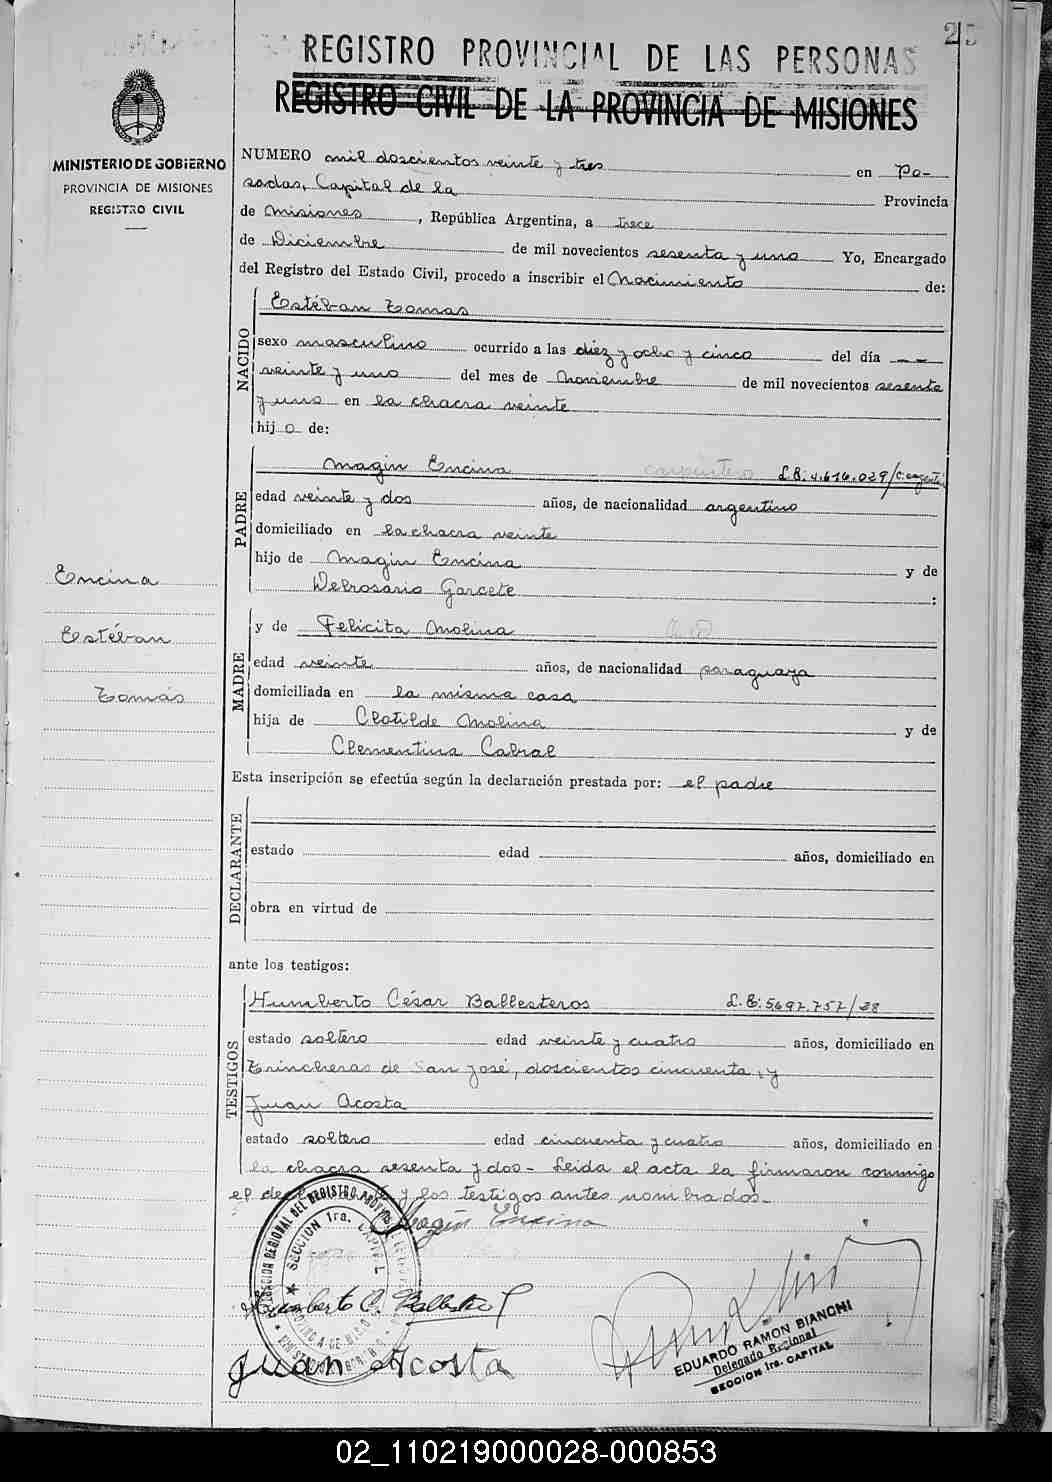 REGISTRO PROVINCIAL DE LAS PERSONAS
REGISTRO CIVIL DE LA PROVINCIA DE MISIONES
MINISTERIO DE GOBIERNO
PROVINCIA DE MISIONES
REGISTRO CIVIL
NUMERO mil doscientos veinte y tres en Po-
sadas, Capital de la Provincia
de Misiones, República Argentina, a trece
de Diciembre de mil novecientos sesenta y uno Yo, Encargado
del Registro del Estado Civil, procedo a inscribir el Nacimiento de:
NACIDO
Estéban Tomas
sexo masculino ocurrido a las diez y ocho y cinco del día
veinte y uno del mes de Noviembre de mil novecientos sesenta
y uno en la chacra veinte
hijo de:
PADRE
Magin Encina carpintero L.E: 4.616.029/C.
edad veinte y dos años, de nacionalidad argentino
domiciliado en la chacra veinte
hijo de Magin Encina y de
Delrosario Garcete :
Encina
Estéban
Tomás
MADRE
y de Felicita Molina
edad veinte años, de nacionalidad paraguaya
domiciliada en la misma casa
hija de Clotilde Molina y de
Clementina Cabral
Esta inscripción se efectúa según la declaración prestada por: el padre
DECLARANTE
estado edad años, domiciliado en
obra en virtud de
ante los testigos:
TESTIGOS
Humberto César Ballesteros L.E: 5697.757/38
estado soltero edad veinte y cuatro años, domiciliado en
Trincheras de San José, doscientos cincuenta, y
Juan Acosta
estado soltero edad cincuenta y cuatro años, domiciliado en
la chacra sesenta y dos - Leida el acta la firmaron conmigo
el declarante y los testigos antes nombrados.-
Magin Encina
SECCION 1ra. CAPITAL
Humberto C. Ballesteros
Juan Acosta
EDUARDO RAMON BIANCHI
Delegado Regional
SECCION 1ra. CAPITAL
02_110219000028-000853